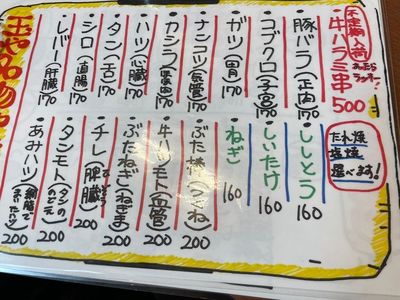 不定期入荷
あったらラッキー
牛ハラミ串 500
たれ焼
塩焼
選べます!
・豚バラ(正肉) 170
・コブクロ(子宮) 170
・ガツ(胃) 170
・ナンコツ(気管) 170
・カシラ 170
・ハツ(心臓) 170
・タン(舌) 170
・シロ(直腸) 170
・レバー(肝臓) 170
・ししとう 160
・しいたけ 160
・ねぎ 160
・ぶた
・牛ハツモト 200
・ぶたねぎ(ねぎま) 200
・チレ(脾臓) 200
・タンモト(タンのつど元) 200
・あみハツ 200